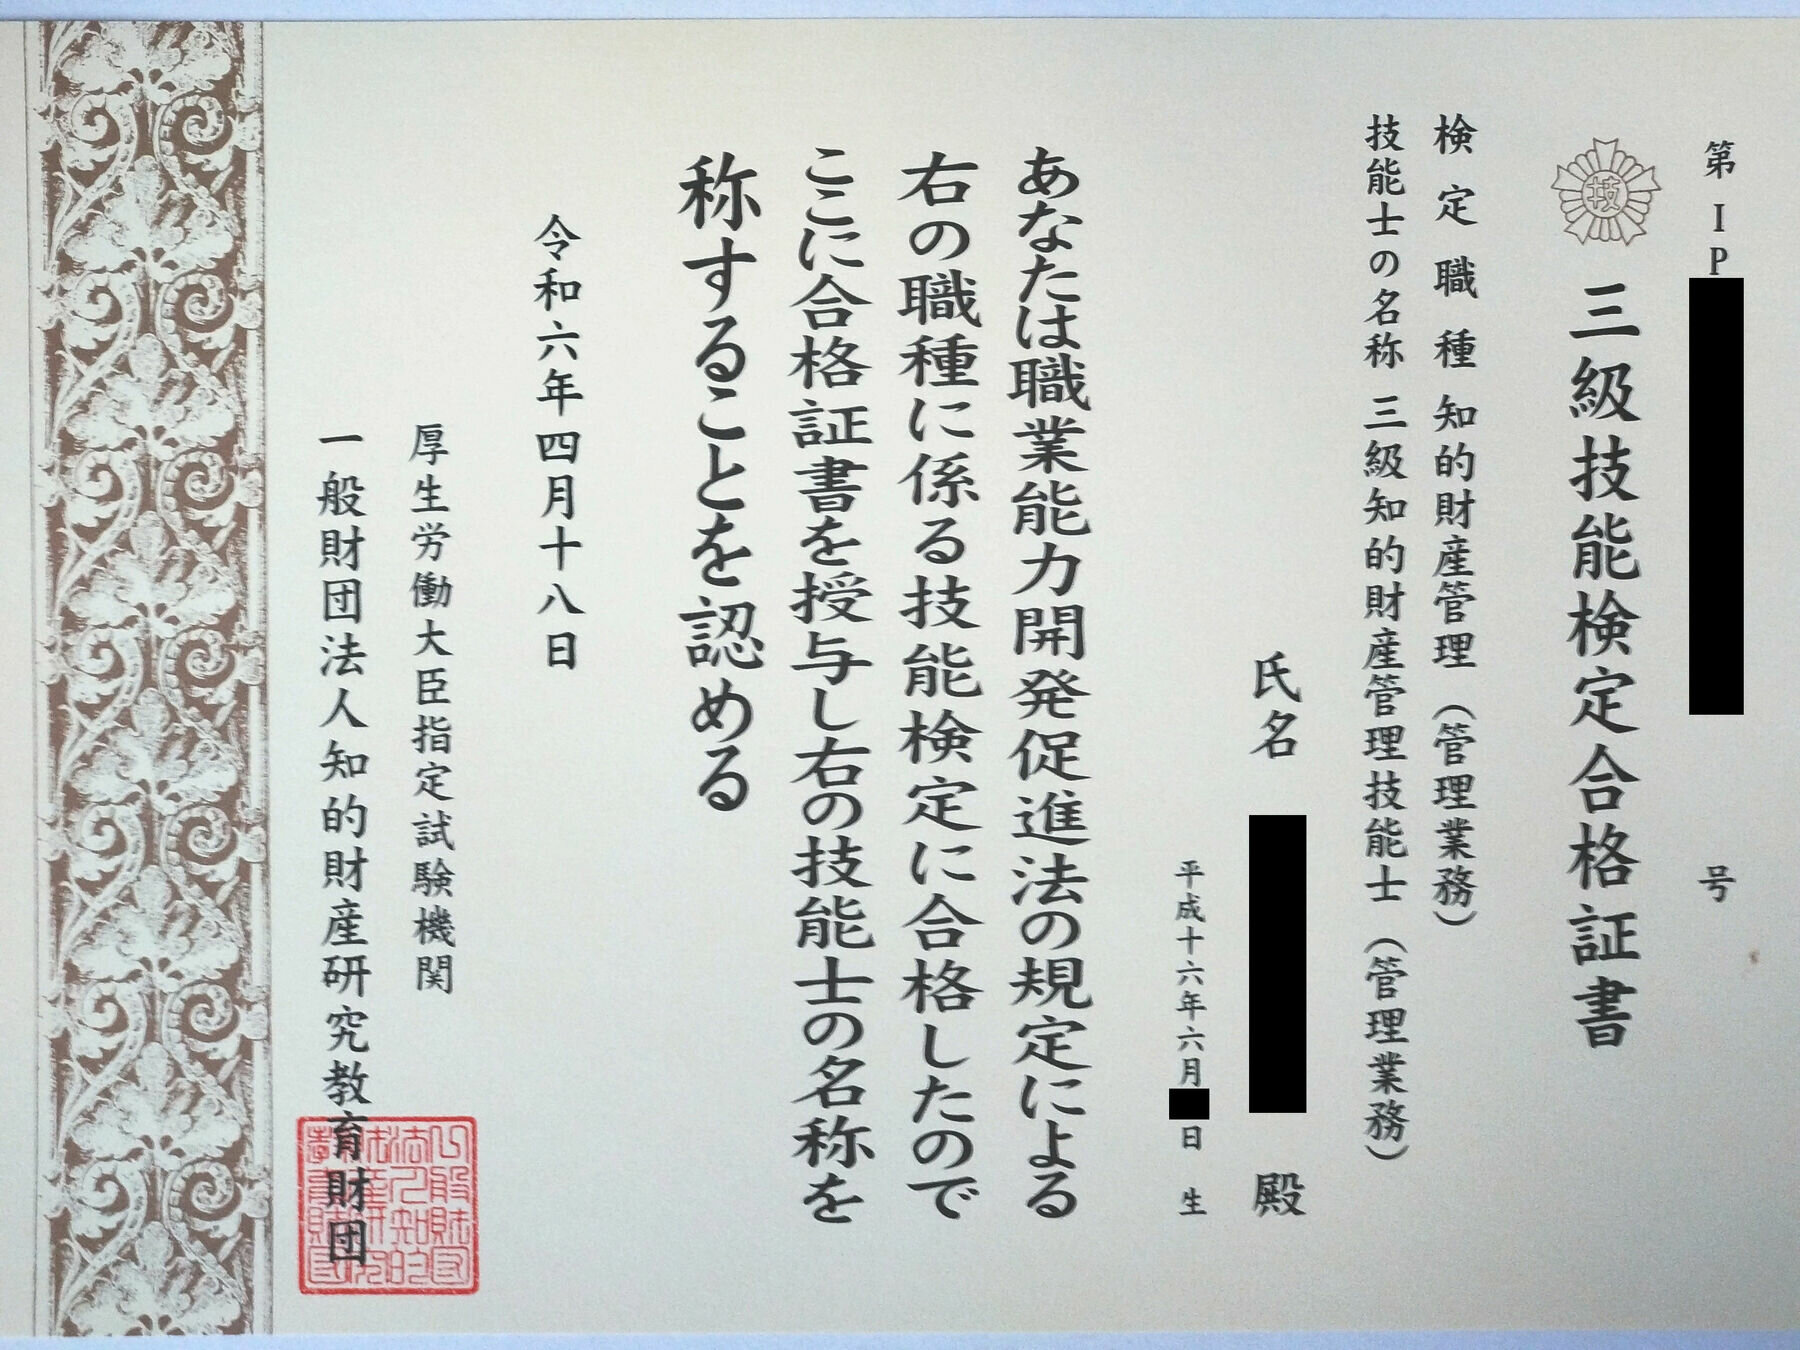 第IP号
技
三級技能検定合格証書
検定職種 知的財産管理（管理業務）
技能士の名称 三級知的財産管理技能士（管理業務）
氏名 殿
平成十六年六月 日 生
あなたは職業能力開発促進法の規定による
右の職種に係る技能検定に合格したので
ここに合格証書を授与し右の技能士の名称を
称することを認める
令和六年四月十八日
厚生労働大臣指定試験機関
一般財団法人知的財産研究教育財団